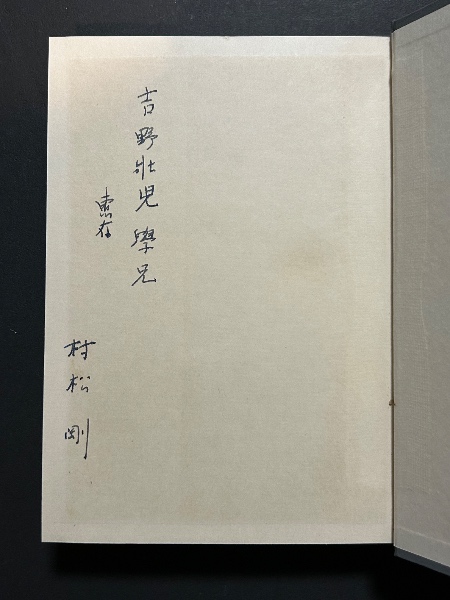 吉野壯児學兄
恵存
村松剛